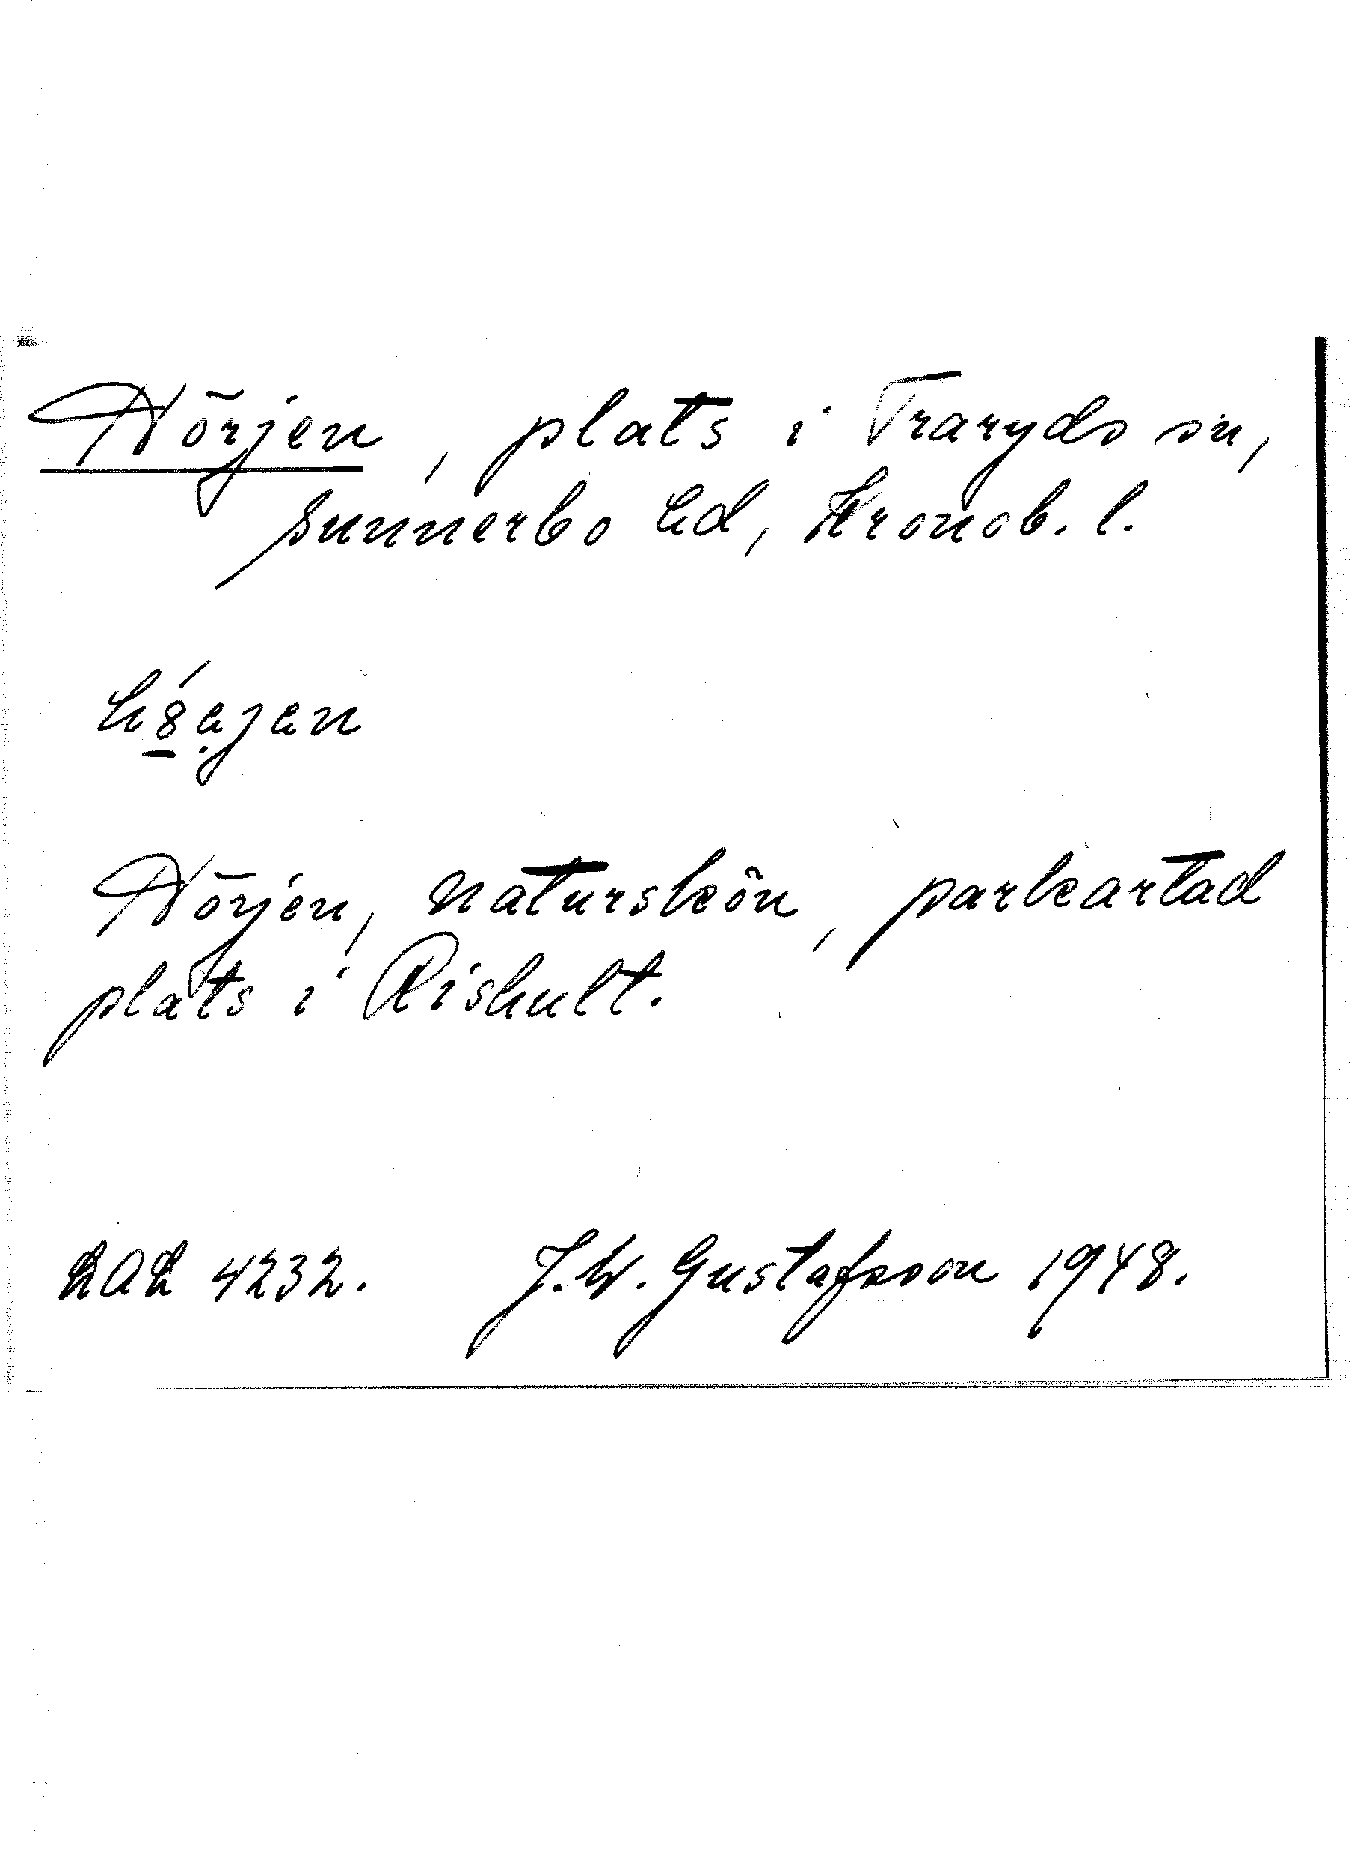 Hörjen, plats i Traryds sn,
Sunnerbo hd, Kronob. l.
Hörjen, naturskön, parkartad
plats i Rishult.
LAL 4232. J.W. Gustafsson 1948.